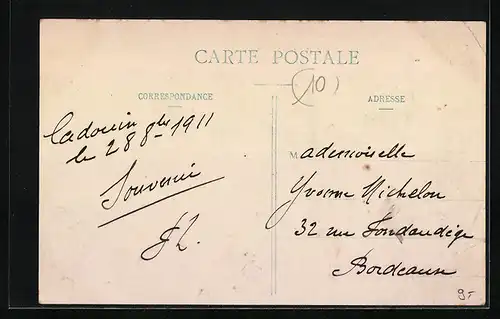 CARTE POSTALE
(10)
CORRESPONDANCE
ADRESSE
Cadouin
le 28 8bre 1911
Souvenir
Mademoiselle
Yvonne Michelon
32 rue Fondaudège
Bordeaux
9-